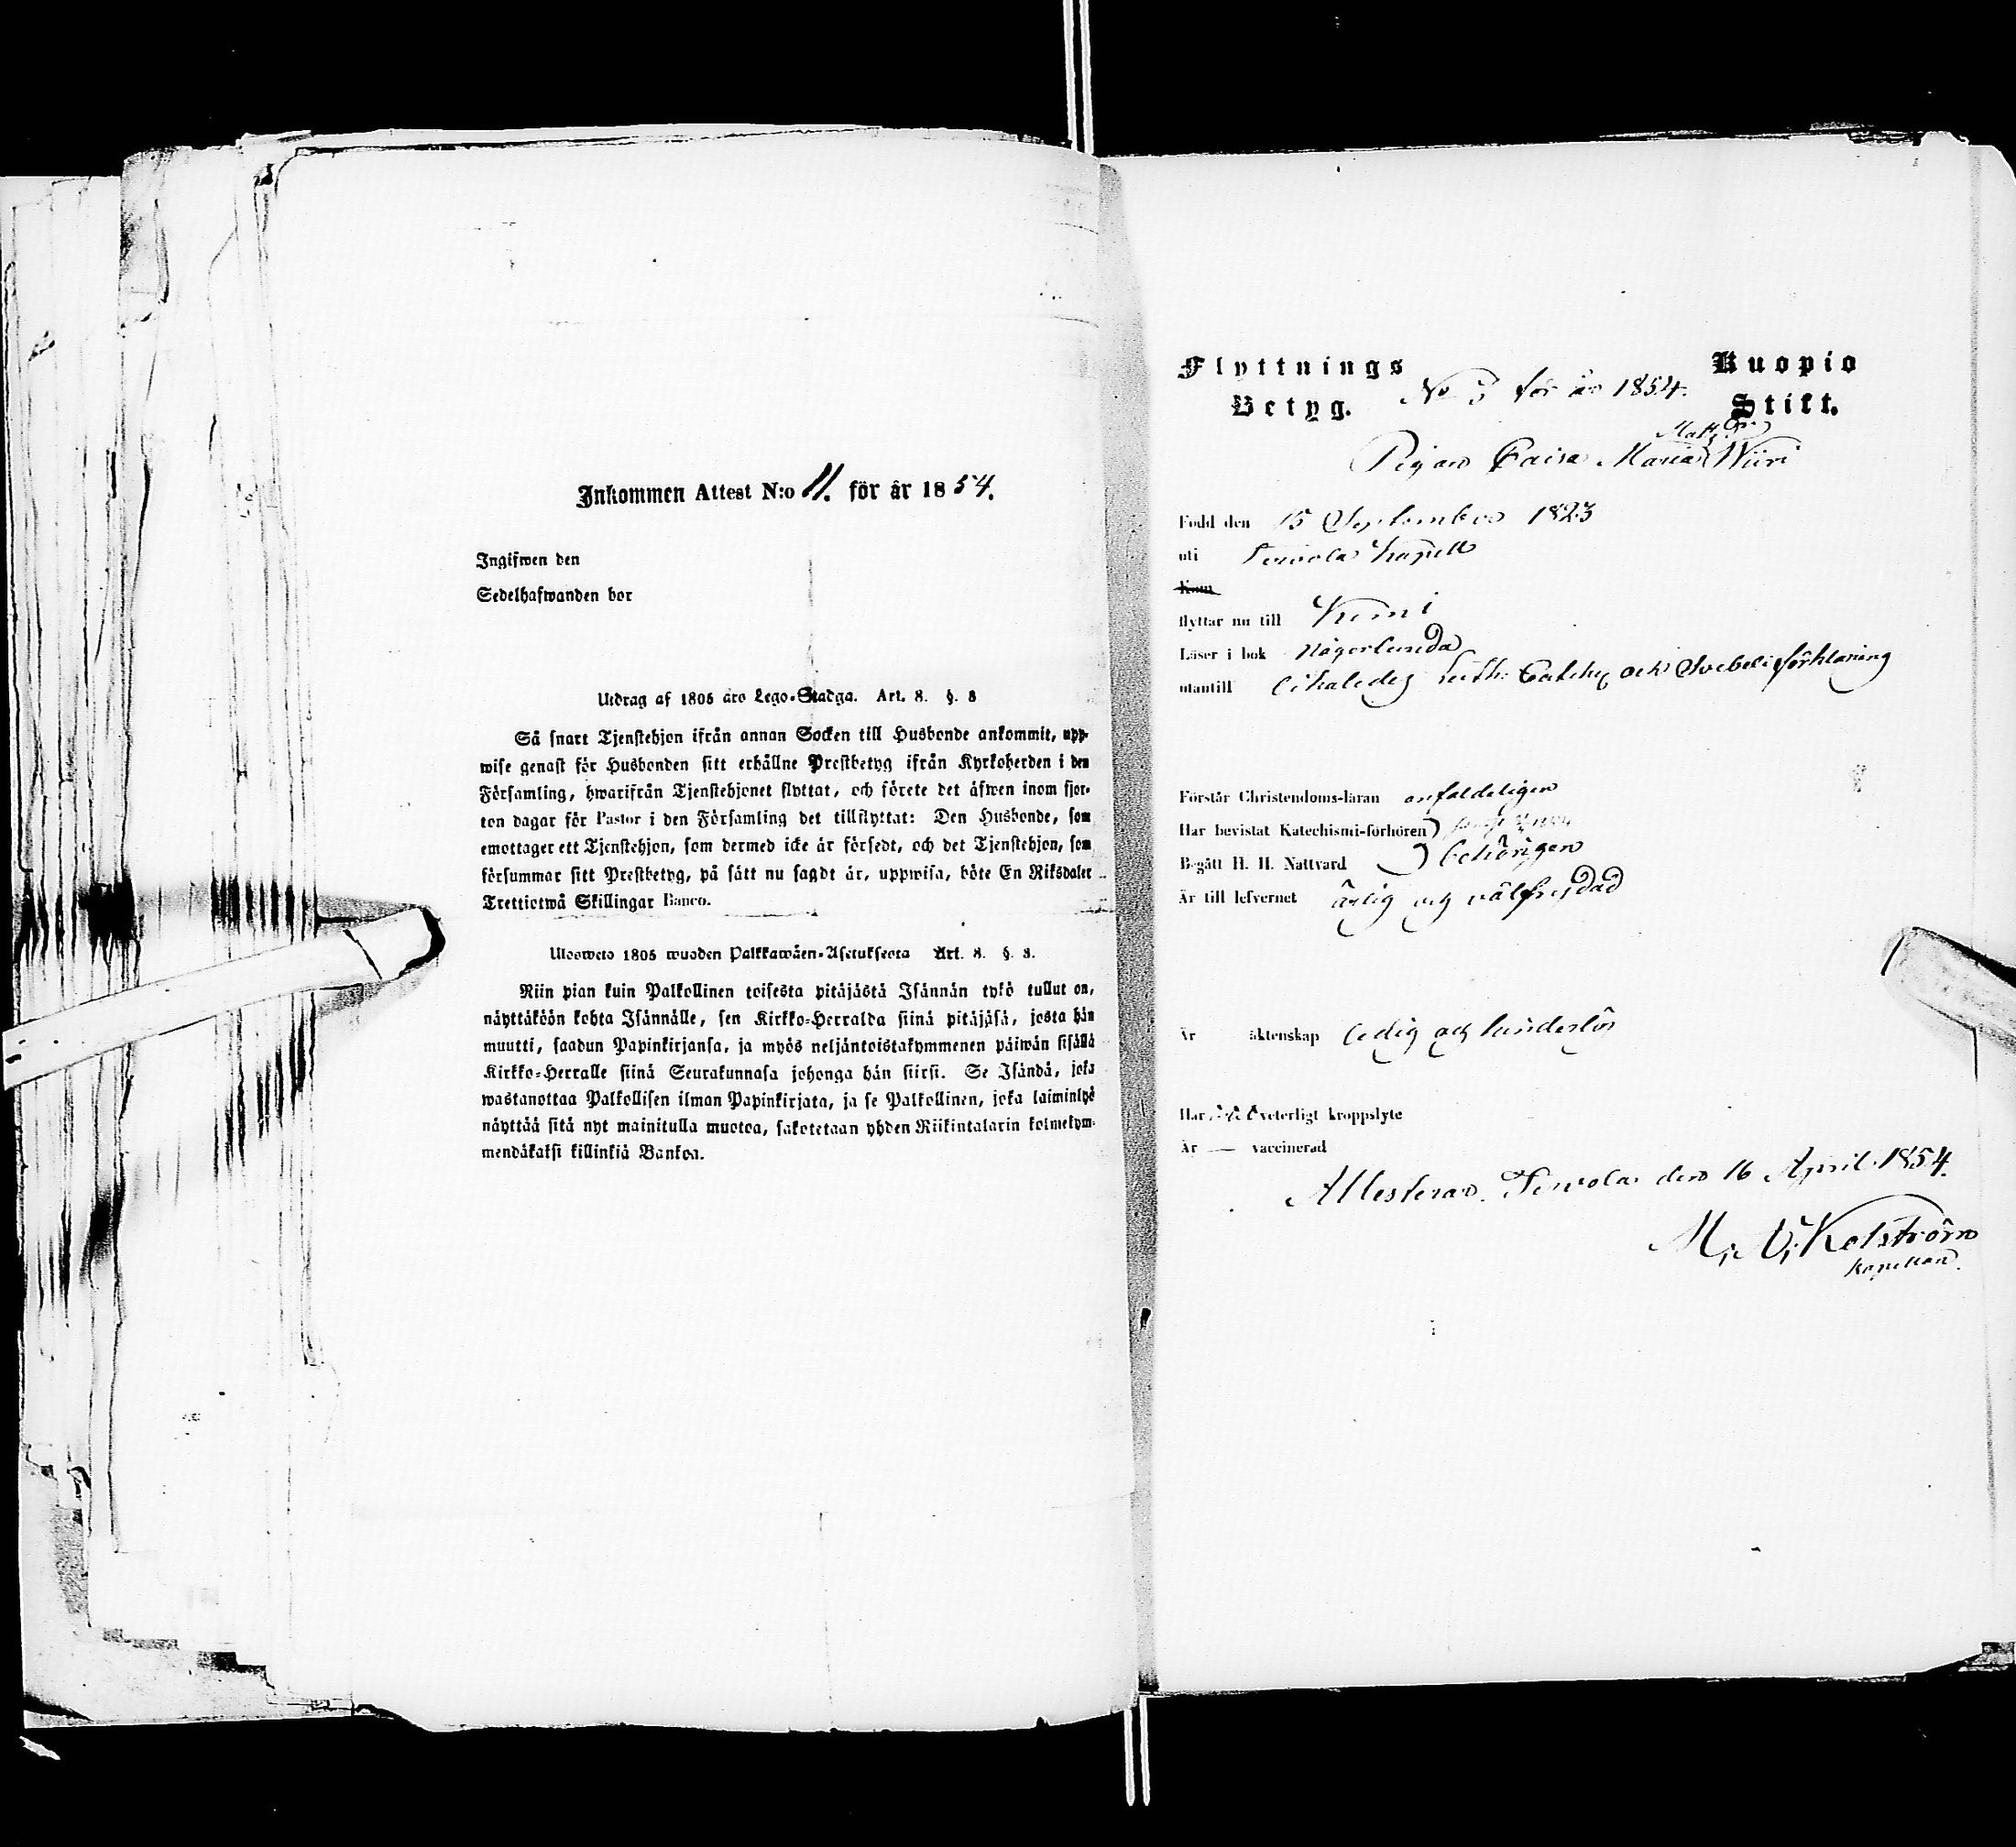 Inkommen Attest N:o 11. för år 1854.
Ingifwen den
Sedelhafwanden bor
Utdrag af 1805 års Lego-Stadga. Art. 8. §. 8
Så snart Tjenstehjon ifrån annan Socken till Husbonde ankommit, upp-
wise genast för Husbonden sitt erhållne Prestbetyg ifrån Kyrkoherden i den
Församling, hwarifrån Tjenstehjonet flyttat, och förete det äfwen inom fjor-
ton dagar för Pastor i den Församling det tillflyttat: Den Husbonde, som
emottager ett Tjenstehjon, som dermed icke är försedt, och det Tjenstehjon, som
försummar sitt Prestbetyg, på sätt nu sagdt är, uppwisa, böte En Riksdaler
Trettiotwå Skillingar Banco.
Ulosweto 1805 wuoden Palkkawäen-Asetuksesta Art. 8. §. 8.
Niin pian kuin Palkollinen toisesta pitäjästä Isännän tykö tullut on,
näyttäköön kohta Isännälle, sen Kirkko-Herralda siinä pitäjäsä, josta hän
muutti, saadun Papinkirjansa, ja myös neljäntoistakymmenen päiwän sisällä
Kirkko-Herralle siinä Seurakunnasa johonga hän siirsi. Se Isändä, joka
wastanottaa Palkollisen ilman Papinkirjata, ja se Palkollinen, joka laiminlyö
näyttää sitä nyt mainitulla muotoa, sakotetaan yhden Riikintalarin kolmekym-
mendäkaksi killinkiä Bankoa.
Flyttnings Kuopio
No 5 för år 1854.
Betyg. Stift.
Pigan Caisa Maria Wiiri
Född den 15 September 1823
uti Terwola kapell
Kom
flyttar nu till Kemi
Läser i bok någorlunda
utantill likaledes Luth: Catches och Svebeli förklaring
Förstår Christendoms-läran enfaldeligen
Har bevistat Katechismi-förhören
Begått H. H. Nattvard behörigen
Är till lefvernet ärlig och välfrejdad
Är äktenskap ledig och hinderslös
Har veterligt kroppslyte
Är — vaccinerad
Attesterar. Terwola den 16 April 1854.
M. U. Kolström
Kapellan.